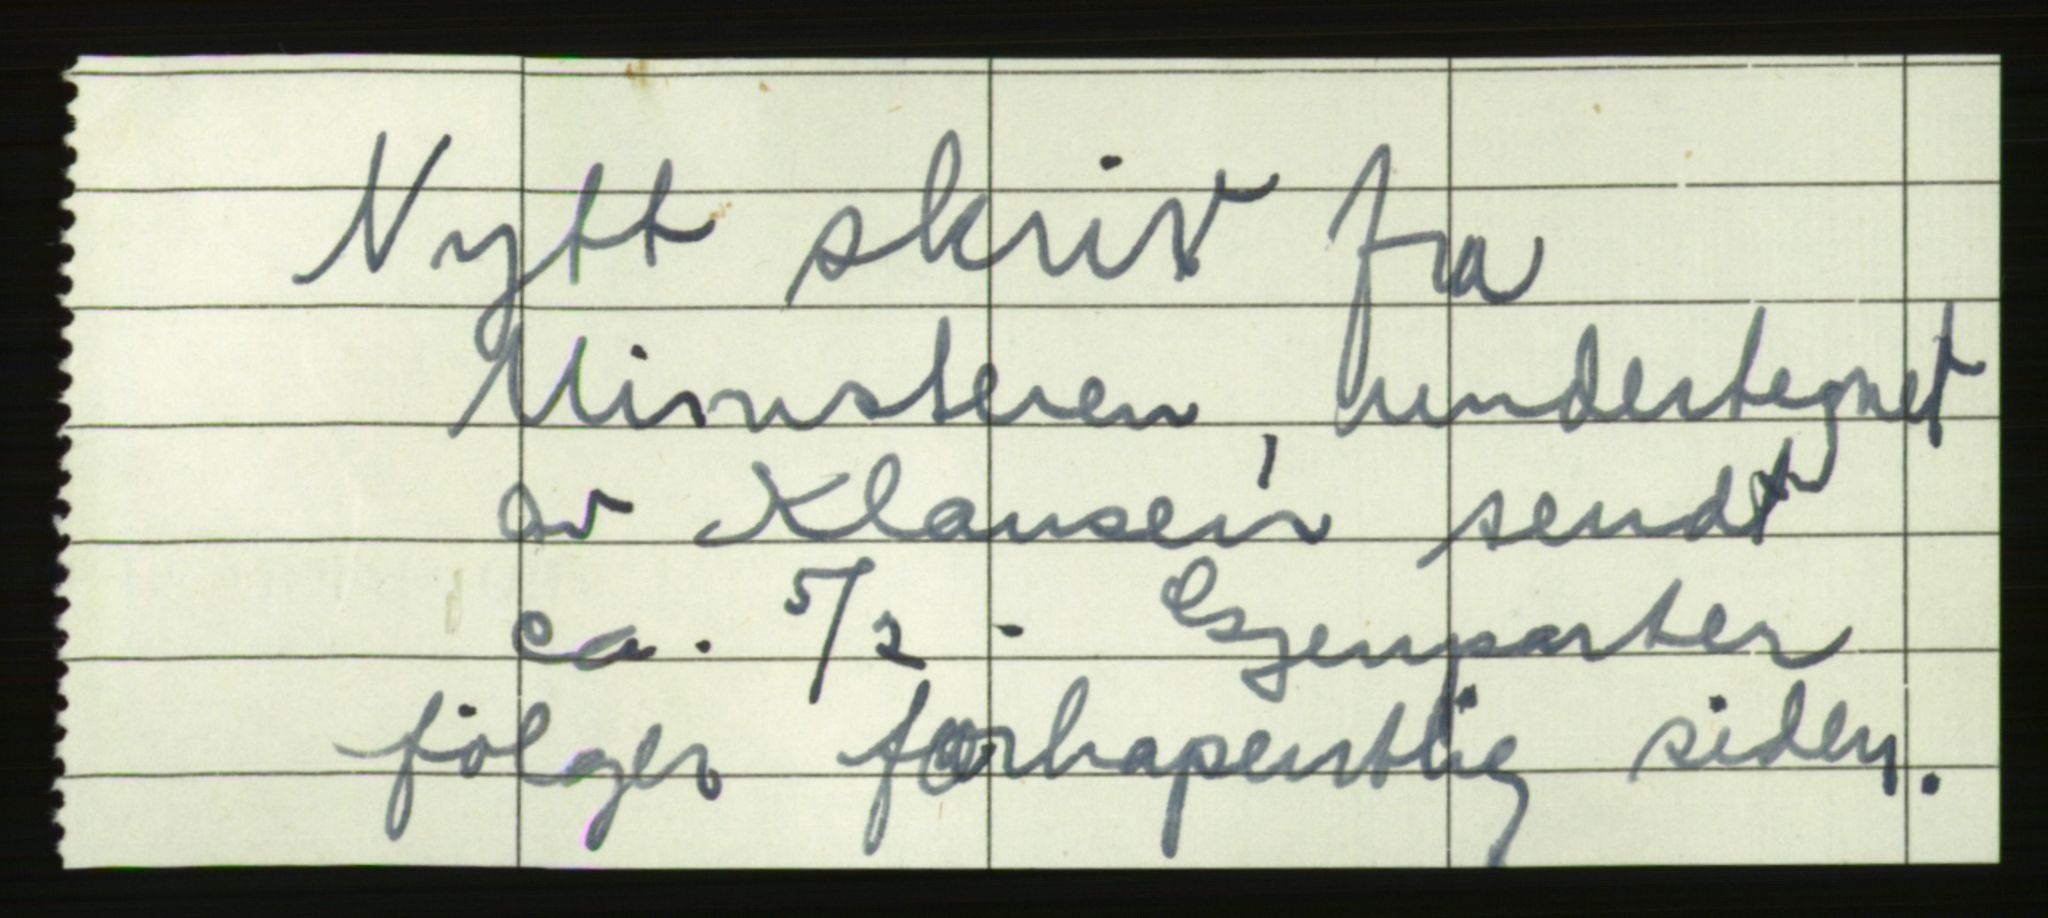 Nytt skriv fra
Ministeren, undertegnet
av Klausen, sendt
ca. 5/2. Gjenparter
følger forhapentlig siden.